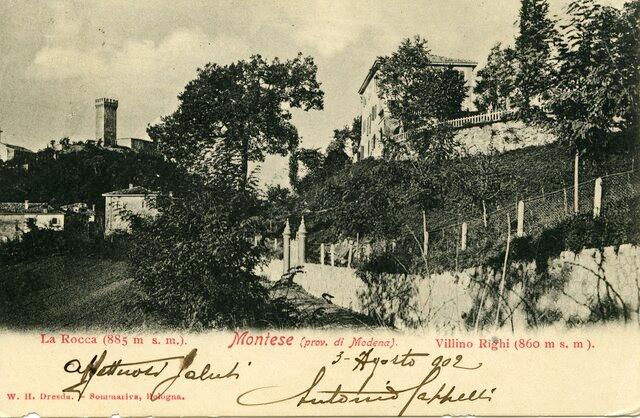 La Rocca (885 m s. m.). Montese (prov. di Modena). Villino Righi (860 m s. m.).
Affettuosi Saluti 3-Agosto 902
W. H. Dresda. - Sommariva, Bologna. Antonio Cappelli